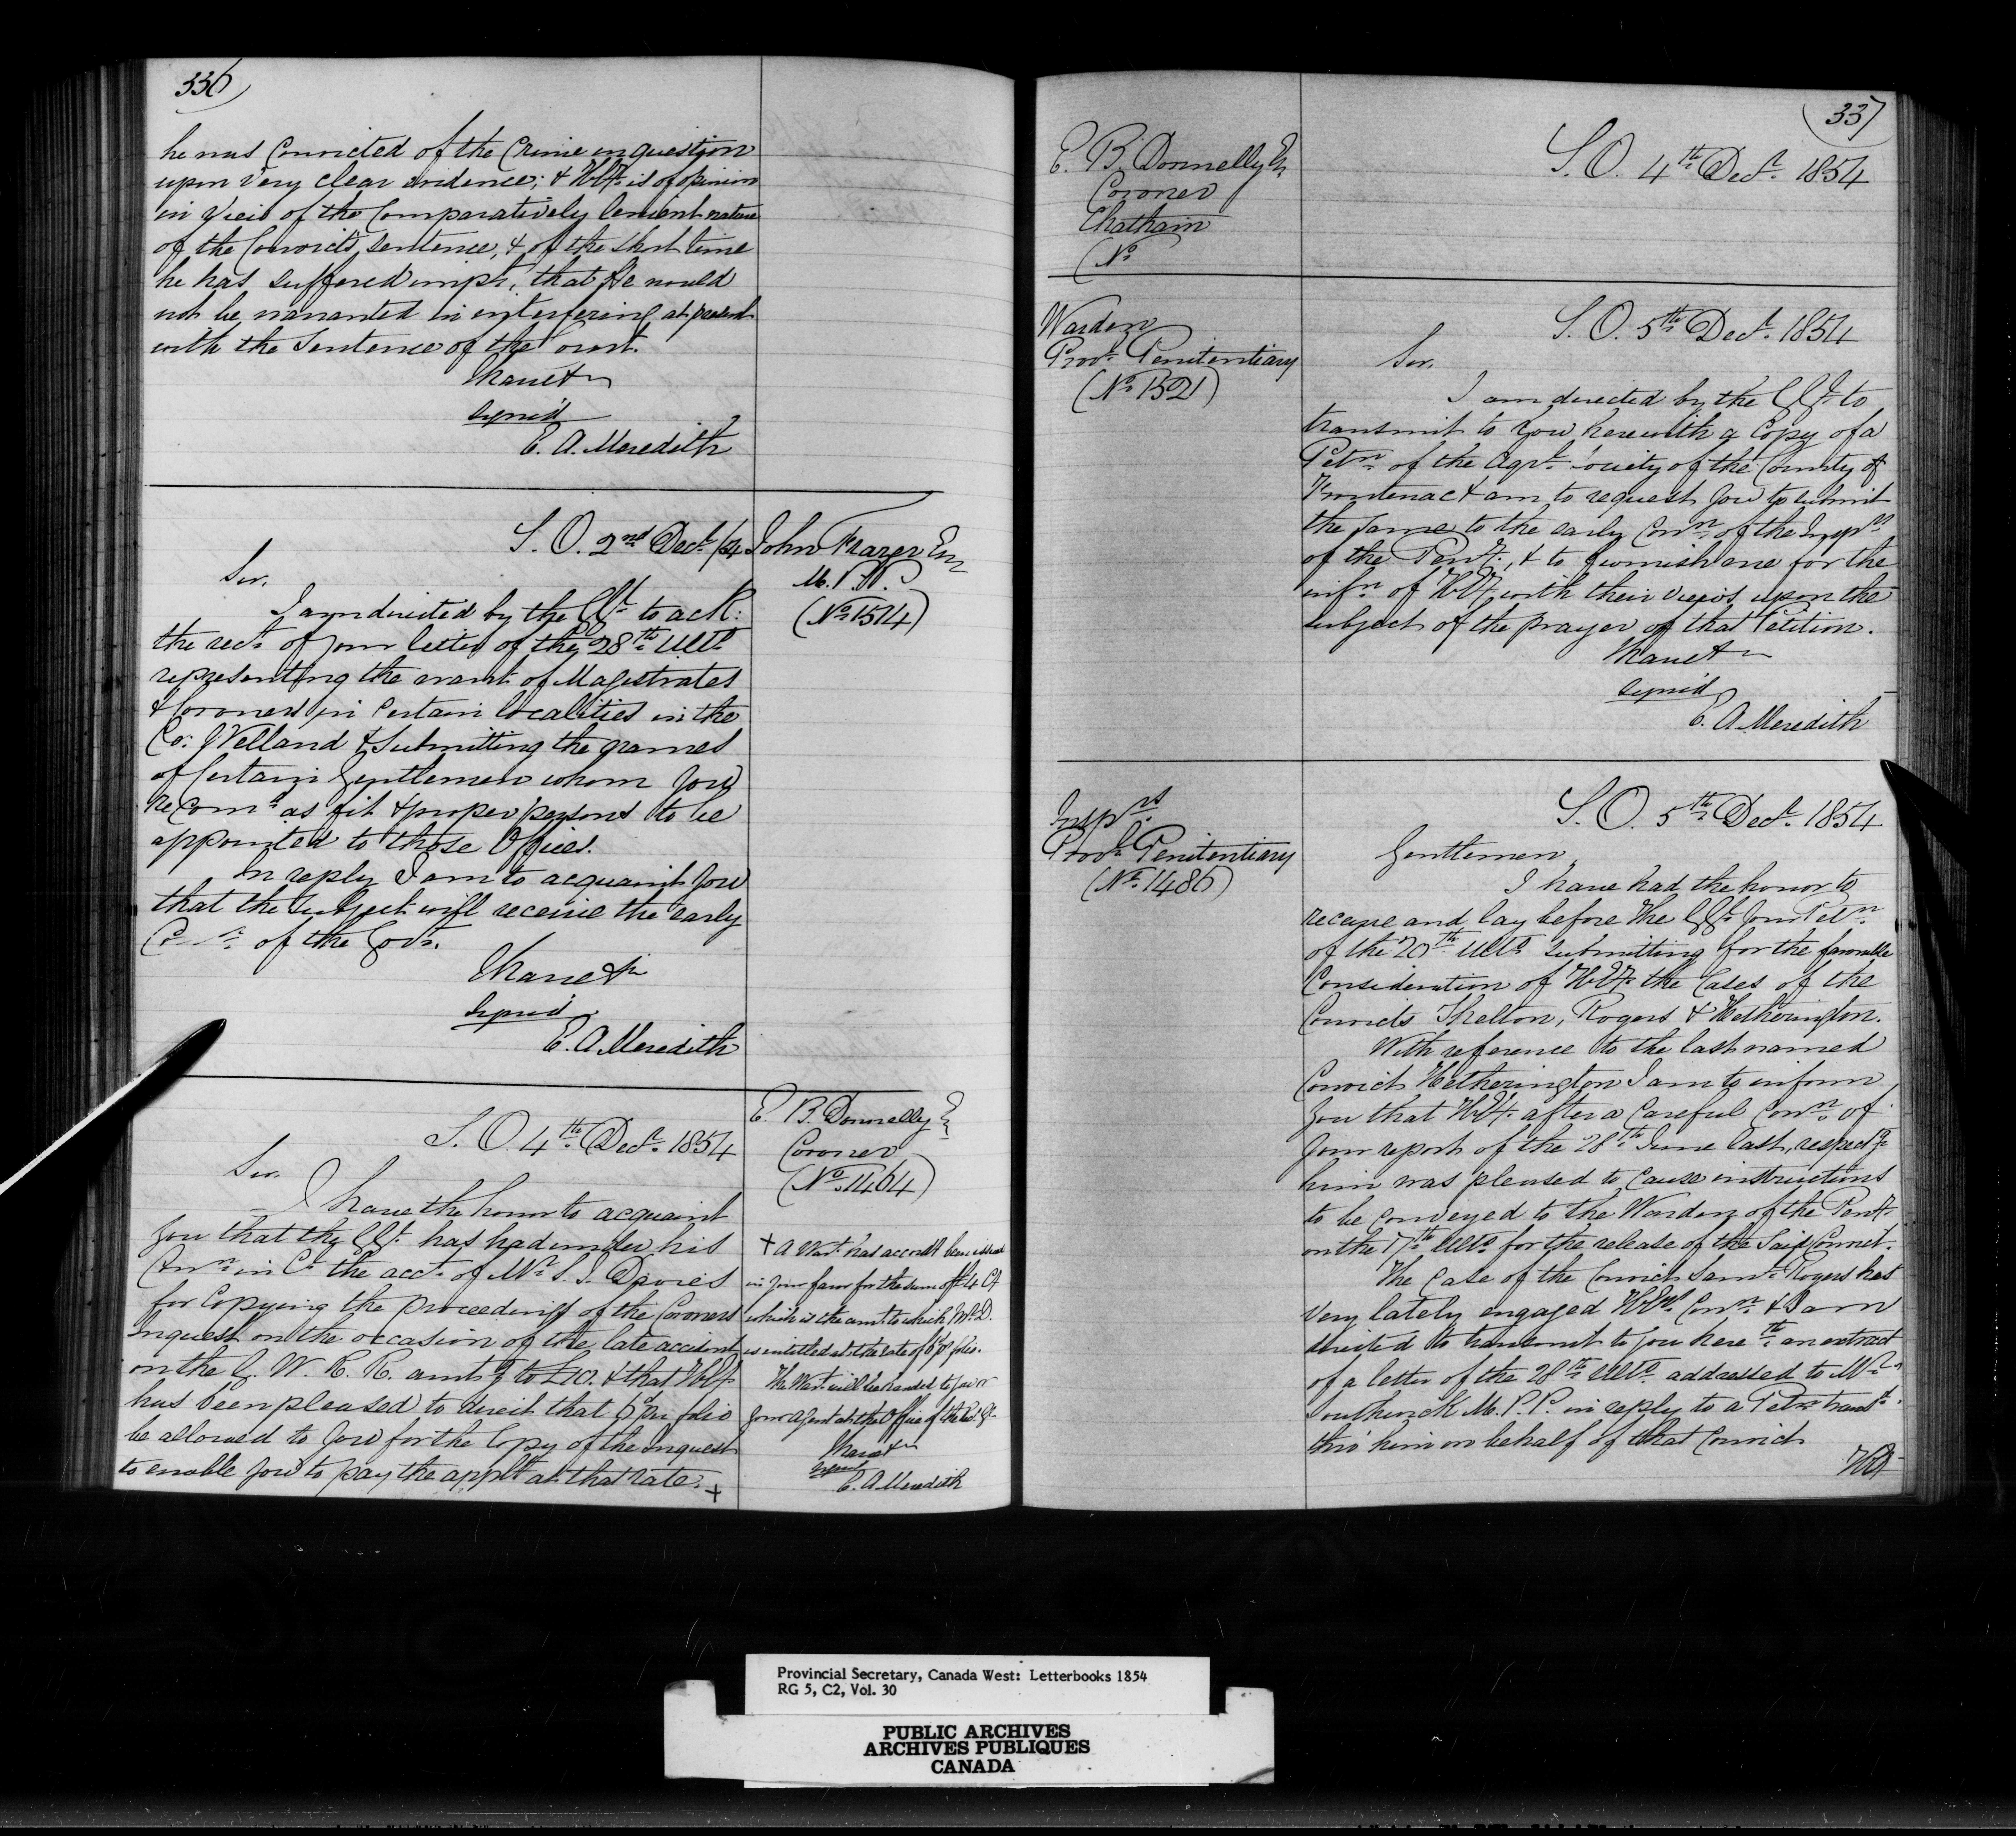 336
he was convicted of the Crime in question
upon very clear evidence; & H.E. is of opinion
in view of the Comparatively lenient nature
of the Convict's sentence, & of the short time
he has suffered impt., that He would
not be warranted in interfering at present
with the Sentence of the Court.
I have &c
signed
E. A. Meredith
S. O. 2nd Decr. /54
John Frazer Esqr
M. P. P.
(No. 1514)
Sir,
I am directed by the GGl. to ack:
the rect. of your letter of the 28th. Ulto.
representing the want of Magistrates
& Coroners in Certain localities in the
Co: Welland & Submitting the names
of Certain Gentlemen whom you
recomd. as fit & proper persons to be
appointed to those Offices.
In reply I am to acquaint you
that the Subject will receive the early
Conn. of the Govt.
I have &c
signed
E. A. Meredith
S. O. 4th. Decr. 1854
E. B. Donnelly Esqr
Coroner
(No. 1464)
Sir,
I have the honor to acquaint
you that the GGl. has had under his
Conn. in Cl. the acct. of Mr. S. J. Davies
for Copying the proceedings of the Coroners
Inquest on the occasion of the late accident
on the G. W. R. R. amtg. to £10. & that H.E.
has been pleased to direct that 6d per folio
be allowed to you for the Copy of the Inquest
to enable you to pay the applt. at that rate. +
+ A Wart. has accordly. been issued
in your favor for the sum of
which is the amt. to which Mr. D.
is entitled at the rate of 6d pr folio.
The Wart. will be handed to you or
your Agent at the Office of the
I have &c
signed
E. A. Meredith
337
E. B. Donnelly Esqr
Coroner
Chatham
(No.
S. O. 4th. Decr. 1854
Warden
Provl. Penitentiary
(No. 1521)
S. O. 5th. Decr. 1854
Sir,
I am directed by the GGl. to
transmit to you herewith a Copy of a
Petn. of the Agrl. Society of the County of
Frontenac & am to request you to submit
the same to the early Conn. of the Insprs.
of the Penty., & to furnish me for the
infn. of H.E. with their views upon the
subject of the prayer of that Petition.
I have &c
signed
E. A. Meredith
Insprs.
Provl. Penitentiary
(No. 1486)
S. O. 5th. Decr. 1854
Gentlemen,
I have had the honor to
receive and lay before the GGl. your Petn.
of the 20th. Ulto. submitting for the favorable
Consideration of H.E. the Cases of the
Convicts Shelton, Rogers & Hetherington.
With reference to the last named
Convict Hetherington I am to inform
you that H.E. after a Careful Conn. of
your report of the 28th. June last, respectg.
him was pleased to cause instructions
to be conveyed to the Warden of the Penty.
on the 17th. Ulto. for the release of the Said Convict.
The Case of the Convict Saml. Rogers has
very lately engaged H.E's Conn. & I am
directed to transmit to you herewth. an extract
of a letter of the 28th. Ulto. addressed to Mr.
Southwick M. P. P. in reply to a Petn. transd.
thro' him on behalf of that Convict
H.E.
Provincial Secretary, Canada West: Letterbooks 1854
RG 5, C2, Vol. 30
PUBLIC ARCHIVES
ARCHIVES PUBLIQUES
CANADA